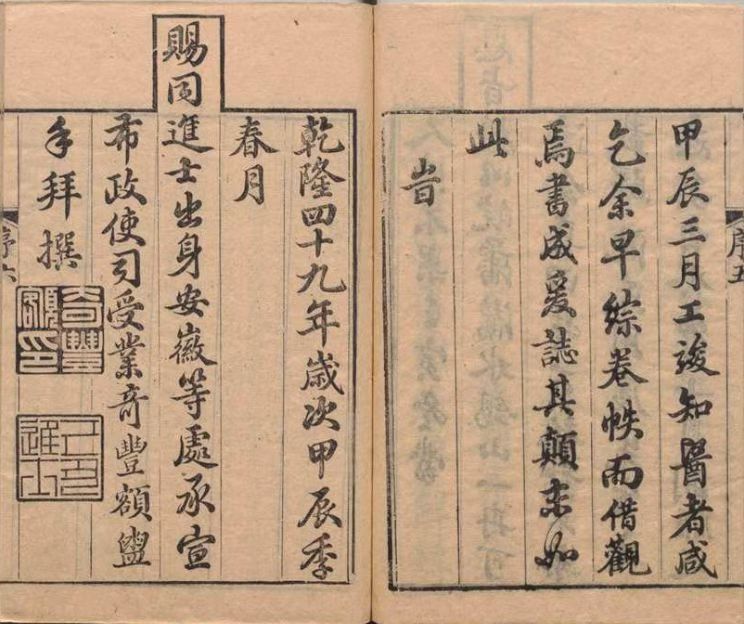 甲辰三月工竣知醫者咸
乞余早綜卷帙而借觀
焉書成爰誌其顛末如
此
旹
序五
乾隆四十九年歲次甲辰季
春月
賜同進士出身安徽等處承宣
布政使司受業奇豐額盥
手拜撰
序六
奇豐額印
己丑進士